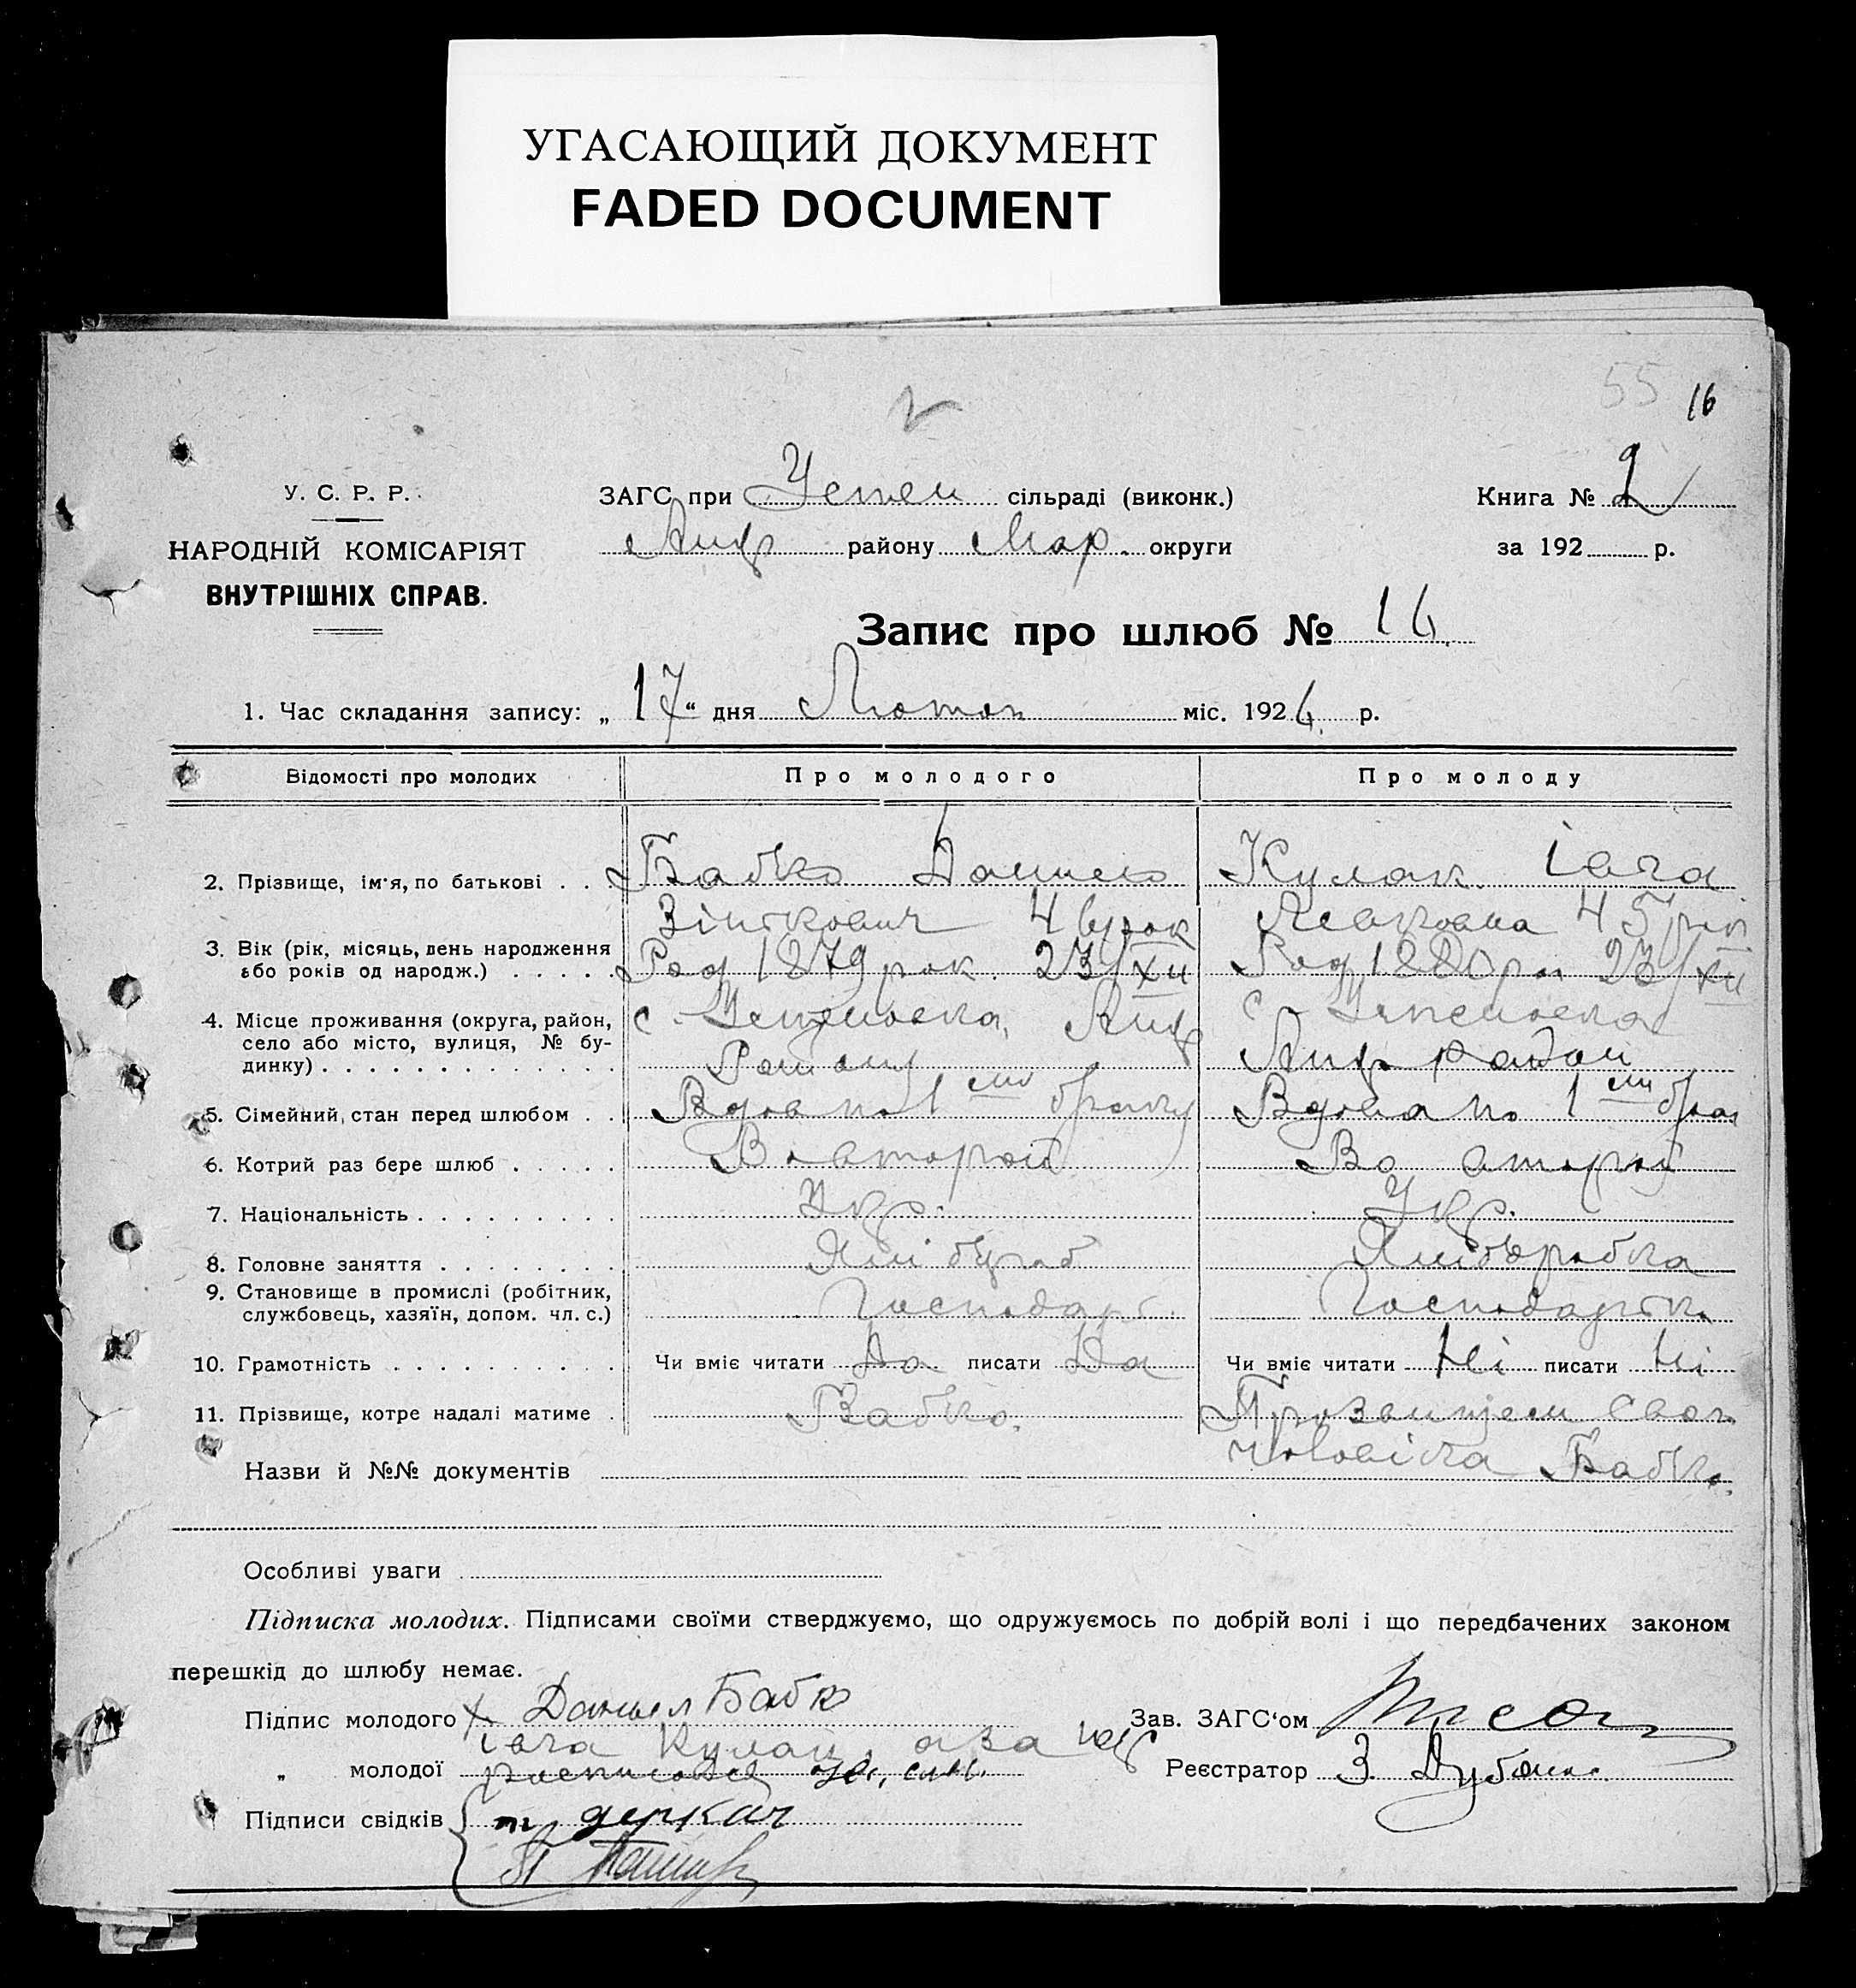 УГАСАЮЩИЙ ДОКУМЕНТ
FADED DOCUMENT
55 16
У. С. Р. Р.
НАРОДНІЙ КОМІСАРІЯТ
ВНУТРІШНІХ СПРАВ.
ЗАГС при Успен сільраді (виконк.)
Амвр району Мар. округи
Книга № 2
за 192 р.
Запис про шлюб № 16
1. Час складання запису: „ 17 “ дня Лютого міс. 1926 р.
Відомості про молодих Про молодого Про молоду
2. Прізвище, ім'я, по батькові . . Бабко Данило Кулак Івга
Зінткович 46 рок Левковна 45 рок
3. Вік (рік, місяць, день народження
або років од народж.) . . . . . Род 1879 рок. 23/XII Род 1880 ро 23/XII
4. Місце проживання (округа, район,
село або місто, вулиця, № бу-
динку) . . . . . . . . . . . . . .
с. Успеновка, Амвр с. Успеновка
Району Амвр район
5. Сімейний стан перед шлюбом . . Вдов по 1 ему браку Вдова по 1 ему брак
6. Котрий раз бере шлюб . . . . . Во второй Во второй
7. Національність . . . . . . . . . Укр. Укр.
8. Головне заняття . . . . . . . . Хлібороб Хліборобка
9. Становище в промислі (робітник,
службовець, хазяїн, допом. чл. с.) Господарь Господарка
10. Грамотність . . . . . . . . . . Чи вміє читати Да писати Да Чи вміє читати Ні писати Ні
11. Прізвище, котре надалі матиме . Бабко. Прозвищем свого
чоловіка Бабко.
Назви й №№ документів
Особливі уваги
Підписка молодих. Підписами своїми стверджуємо, що одружуємось по добрій волі і що передбачених законом
перешкід до шлюбу немає.
Підпис молодого х Данил Бабко
Зав. ЗАГС'ом
Івга Кулак, а за
„ молодої росписовся
Реєстратор З.
Підписи свідків деркач
П